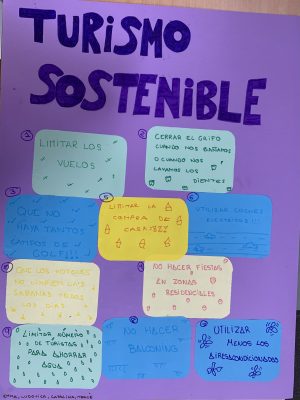 TURISMO
SOSTENIBLE
1
LIMITAR LOS
VUELOS
2
CERRAR EL GRIFO
CUANDO NOS BAÑAMOS
O CUANDO NOS
LAVAMOS LOS
DIENTES
3
QUE NO
HAYA TANTOS
CAMPOS DE
GOLF!!!
5
LIMITAR LA
COMPRA DE
CASAS!!!
6
UTILIZAR COCHES
ELÉCTRICOS!!!
QUE LOS HOTELES
NO LIMPIEN LAS
SÁBANAS TODOS
LOS DÍAS
4
NO HACER FIESTAS
EN ZONAS
RESIDENCIALES
9
LIMITAR NÚMERO
DE TURISTAS
PARA AHORRAR
AGUA
NO HACER
BALCONING
UTILIZAR
MENOS LOS
AIRES ACONDICIONADOS
LUDOVICA, CATALINA,